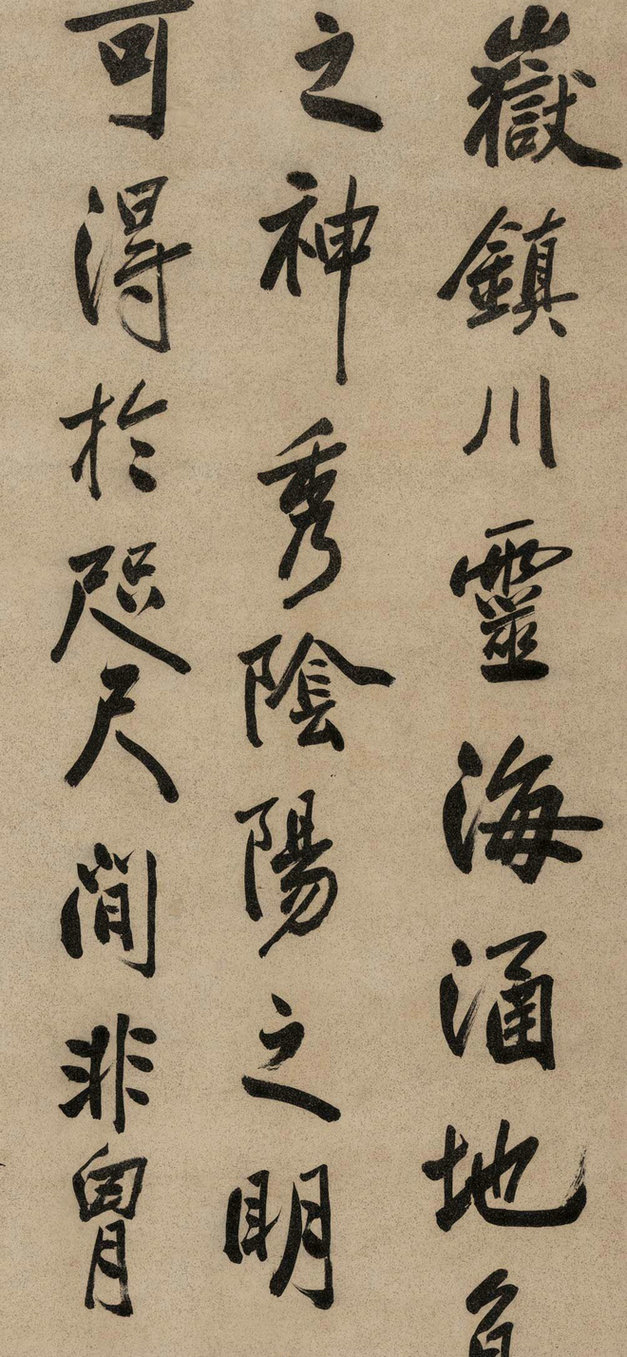 嶽鎮川靈海涌地
之神秀陰陽之明
可得於咫尺間非胷